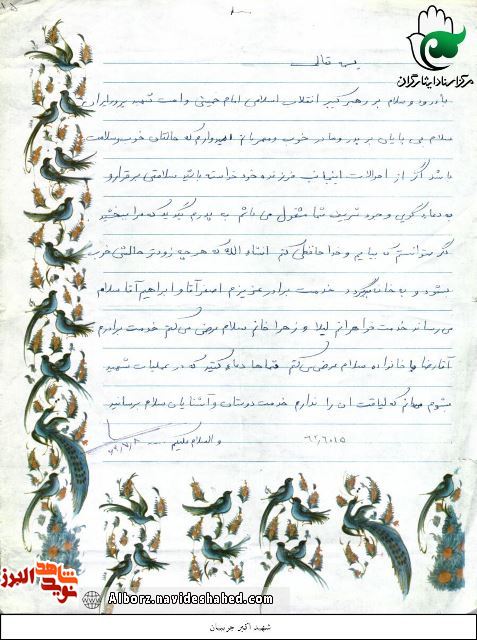 مرکز اسناد ایثارگران
بسمه تعالی
با درود و سلام بر رهبر کبیر انقلاب اسلامی امام خمینی و امت شهید پرور ایران
سلام بی پایان بر پدر و مادر خوب و مهربانم امیدوارم که حالتان خوب و سلامت
باشد اگر از احوالات اینجانب فرزنده خود خواسته باشید سلامتی برقرار و
به دعاء گویی وجود شریف شما مشغول می باشم به پدرم بگویید که مرا ببخشید
نتوانستم که بیایم و خدا حافظی کنم انشاء الله که هر چه زودتر حالش خوب
بشود و به خانه برگردد خدمت برادر عزیزم اصغر آقا و ابراهیم آقا سلام
می رساند خدمت خواهرانم لیلا و زهرا خانم سلام عرضی می کنم خدمت برادرم
آقا رضا با خانواده سلام عرض می کنم شما دعاء کنید که در عملیات شهید
بشوم که لیاقت آن را ندارم خدمت دوستان و آشنایان سلام برسانید
والسلام علیکم ۶۲٫۶٫۱۵
نوید شاهد البرز
Alborz.navideshahed.com
شهید اکبر